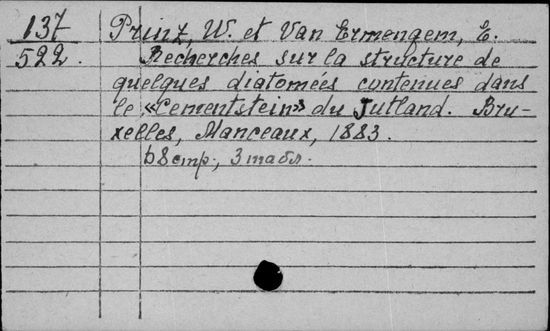 137
522.
Prinz, W. et Van Ermengem, E.
Recherches sur la structure de
quelques diatomées contenues dans
le «Cementstein» du Jutland. Bru-
xelles, Manceaux, 1883.
68 стр., 3 табл.